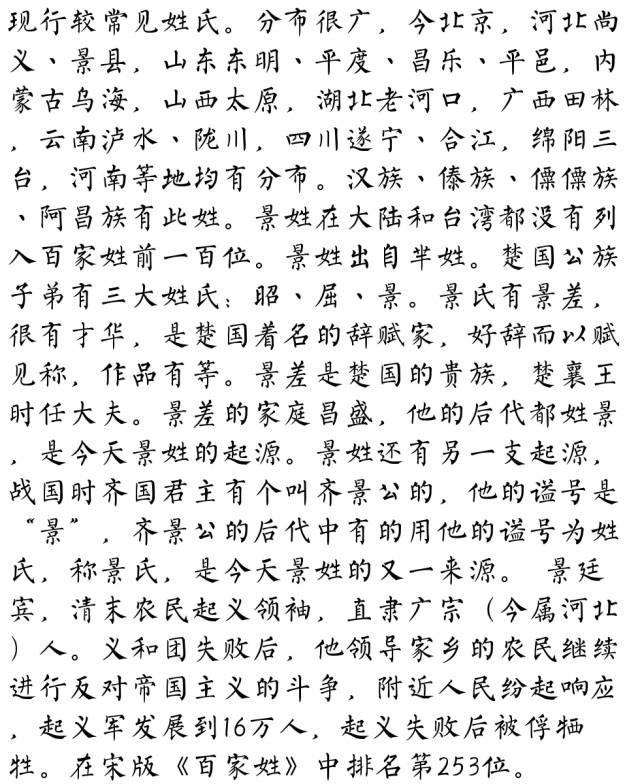 现行较常见姓氏。分布很广，今北京，河北尚
义、景县，山东东明、平度、昌乐、平邑，内
蒙古乌海，山西太原，湖北老河口，广西田林
，云南泸水、陇川，四川遂宁、合江，绵阳三
台，河南等地均有分布。汉族、傣族、僳僳族
、阿昌族有此姓。景姓在大陆和台湾都没有列
入百家姓前一百位。景姓出自芈姓。楚国公族
子弟有三大姓氏：昭、屈、景。景氏有景差，
很有才华，是楚国着名的辞赋家，好辞而以赋
见称，作品有等。景差是楚国的贵族，楚襄王
时任大夫。景差的家庭昌盛，他的后代都姓景
，是今天景姓的起源。景姓还有另一支起源，
战国时齐国君主有个叫齐景公的，他的谥号是
“景”，齐景公的后代中有的用他的谥号为姓
氏，称景氏，是今天景姓的又一来源。 景廷
宾，清末农民起义领袖，直隶广宗（今属河北
）人。义和团失败后，他领导家乡的农民继续
进行反对帝国主义的斗争，附近人民纷起响应
，起义军发展到16万人，起义失败后被俘牺
牲。在宋版《百家姓》中排名第253位。